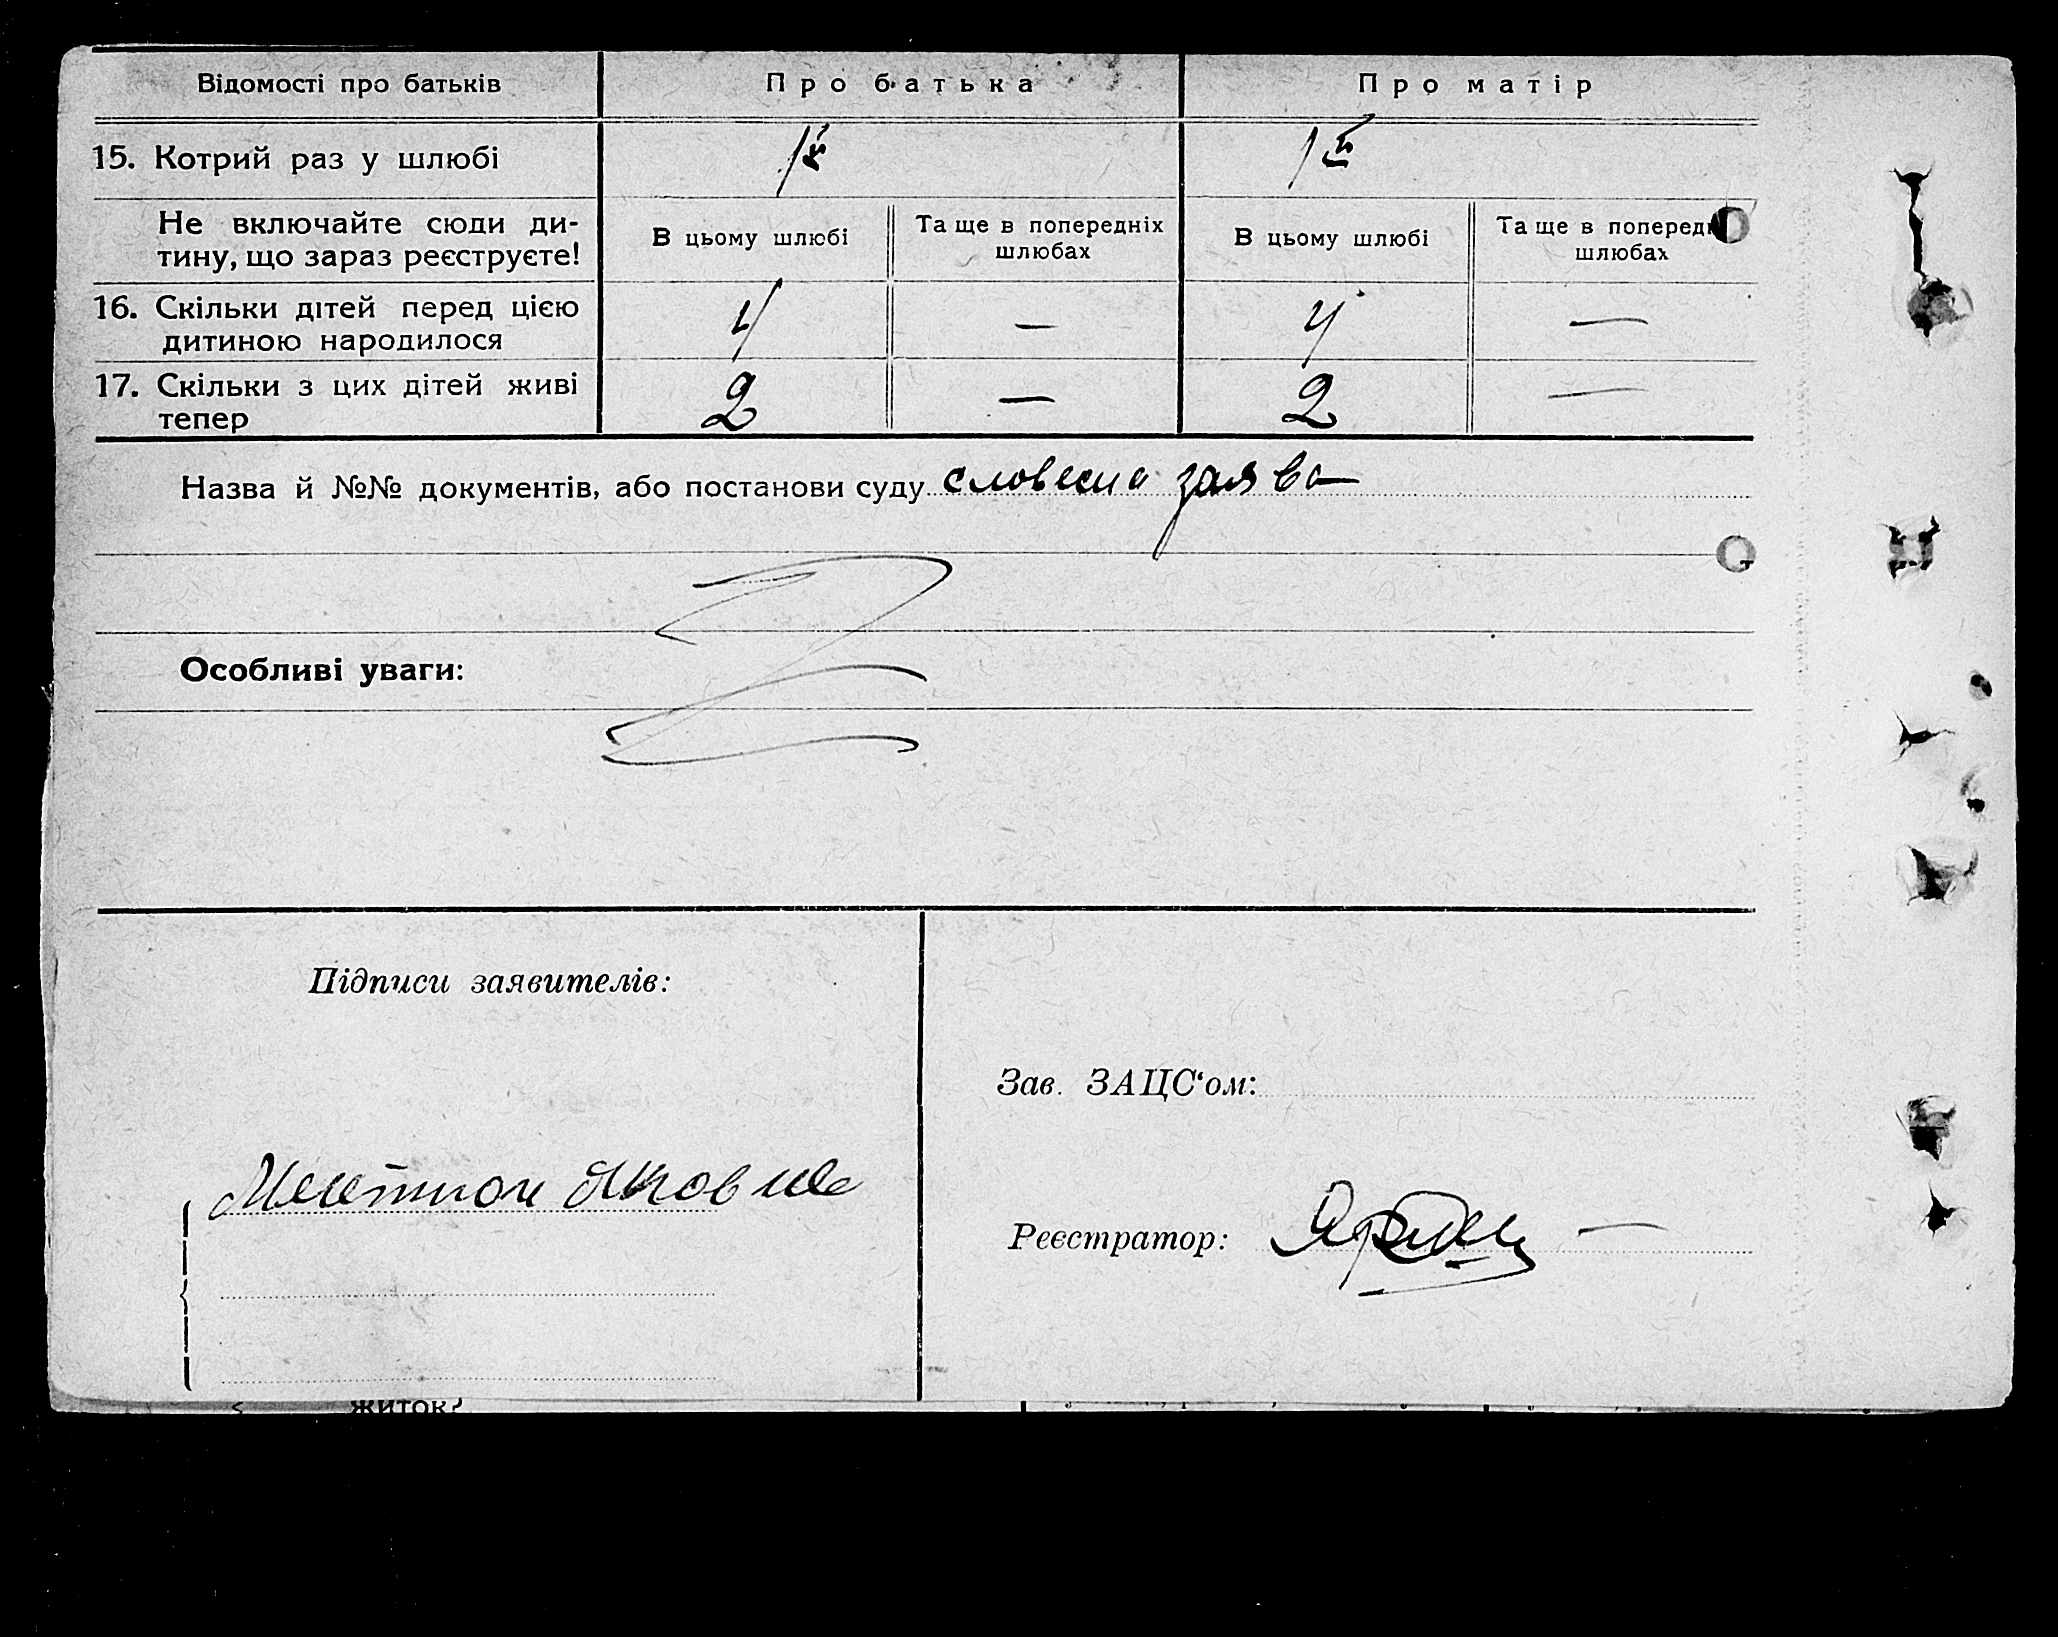 Відомості про батьків
Про батька
Про матір
15. Котрий раз у шлюбі
1й
1й
Не включайте сюди ди-
тину, що зараз реєструєте!
В цьому шлюбі
Та ще в попередніх
шлюбах
В цьому шлюбі
Та ще в поперед
шлюбах
16. Скільки дітей перед цією
дитиною народилося
4
—
4
—
17. Скільки з цих дітей живі
тепер
2
—
2
—
Назва й №№ документів, або постанови суду словесна заява
Особливі уваги:
Підписи заявителів:
Зав. ЗАЦС‘ом:
Реєстратор:
житок?